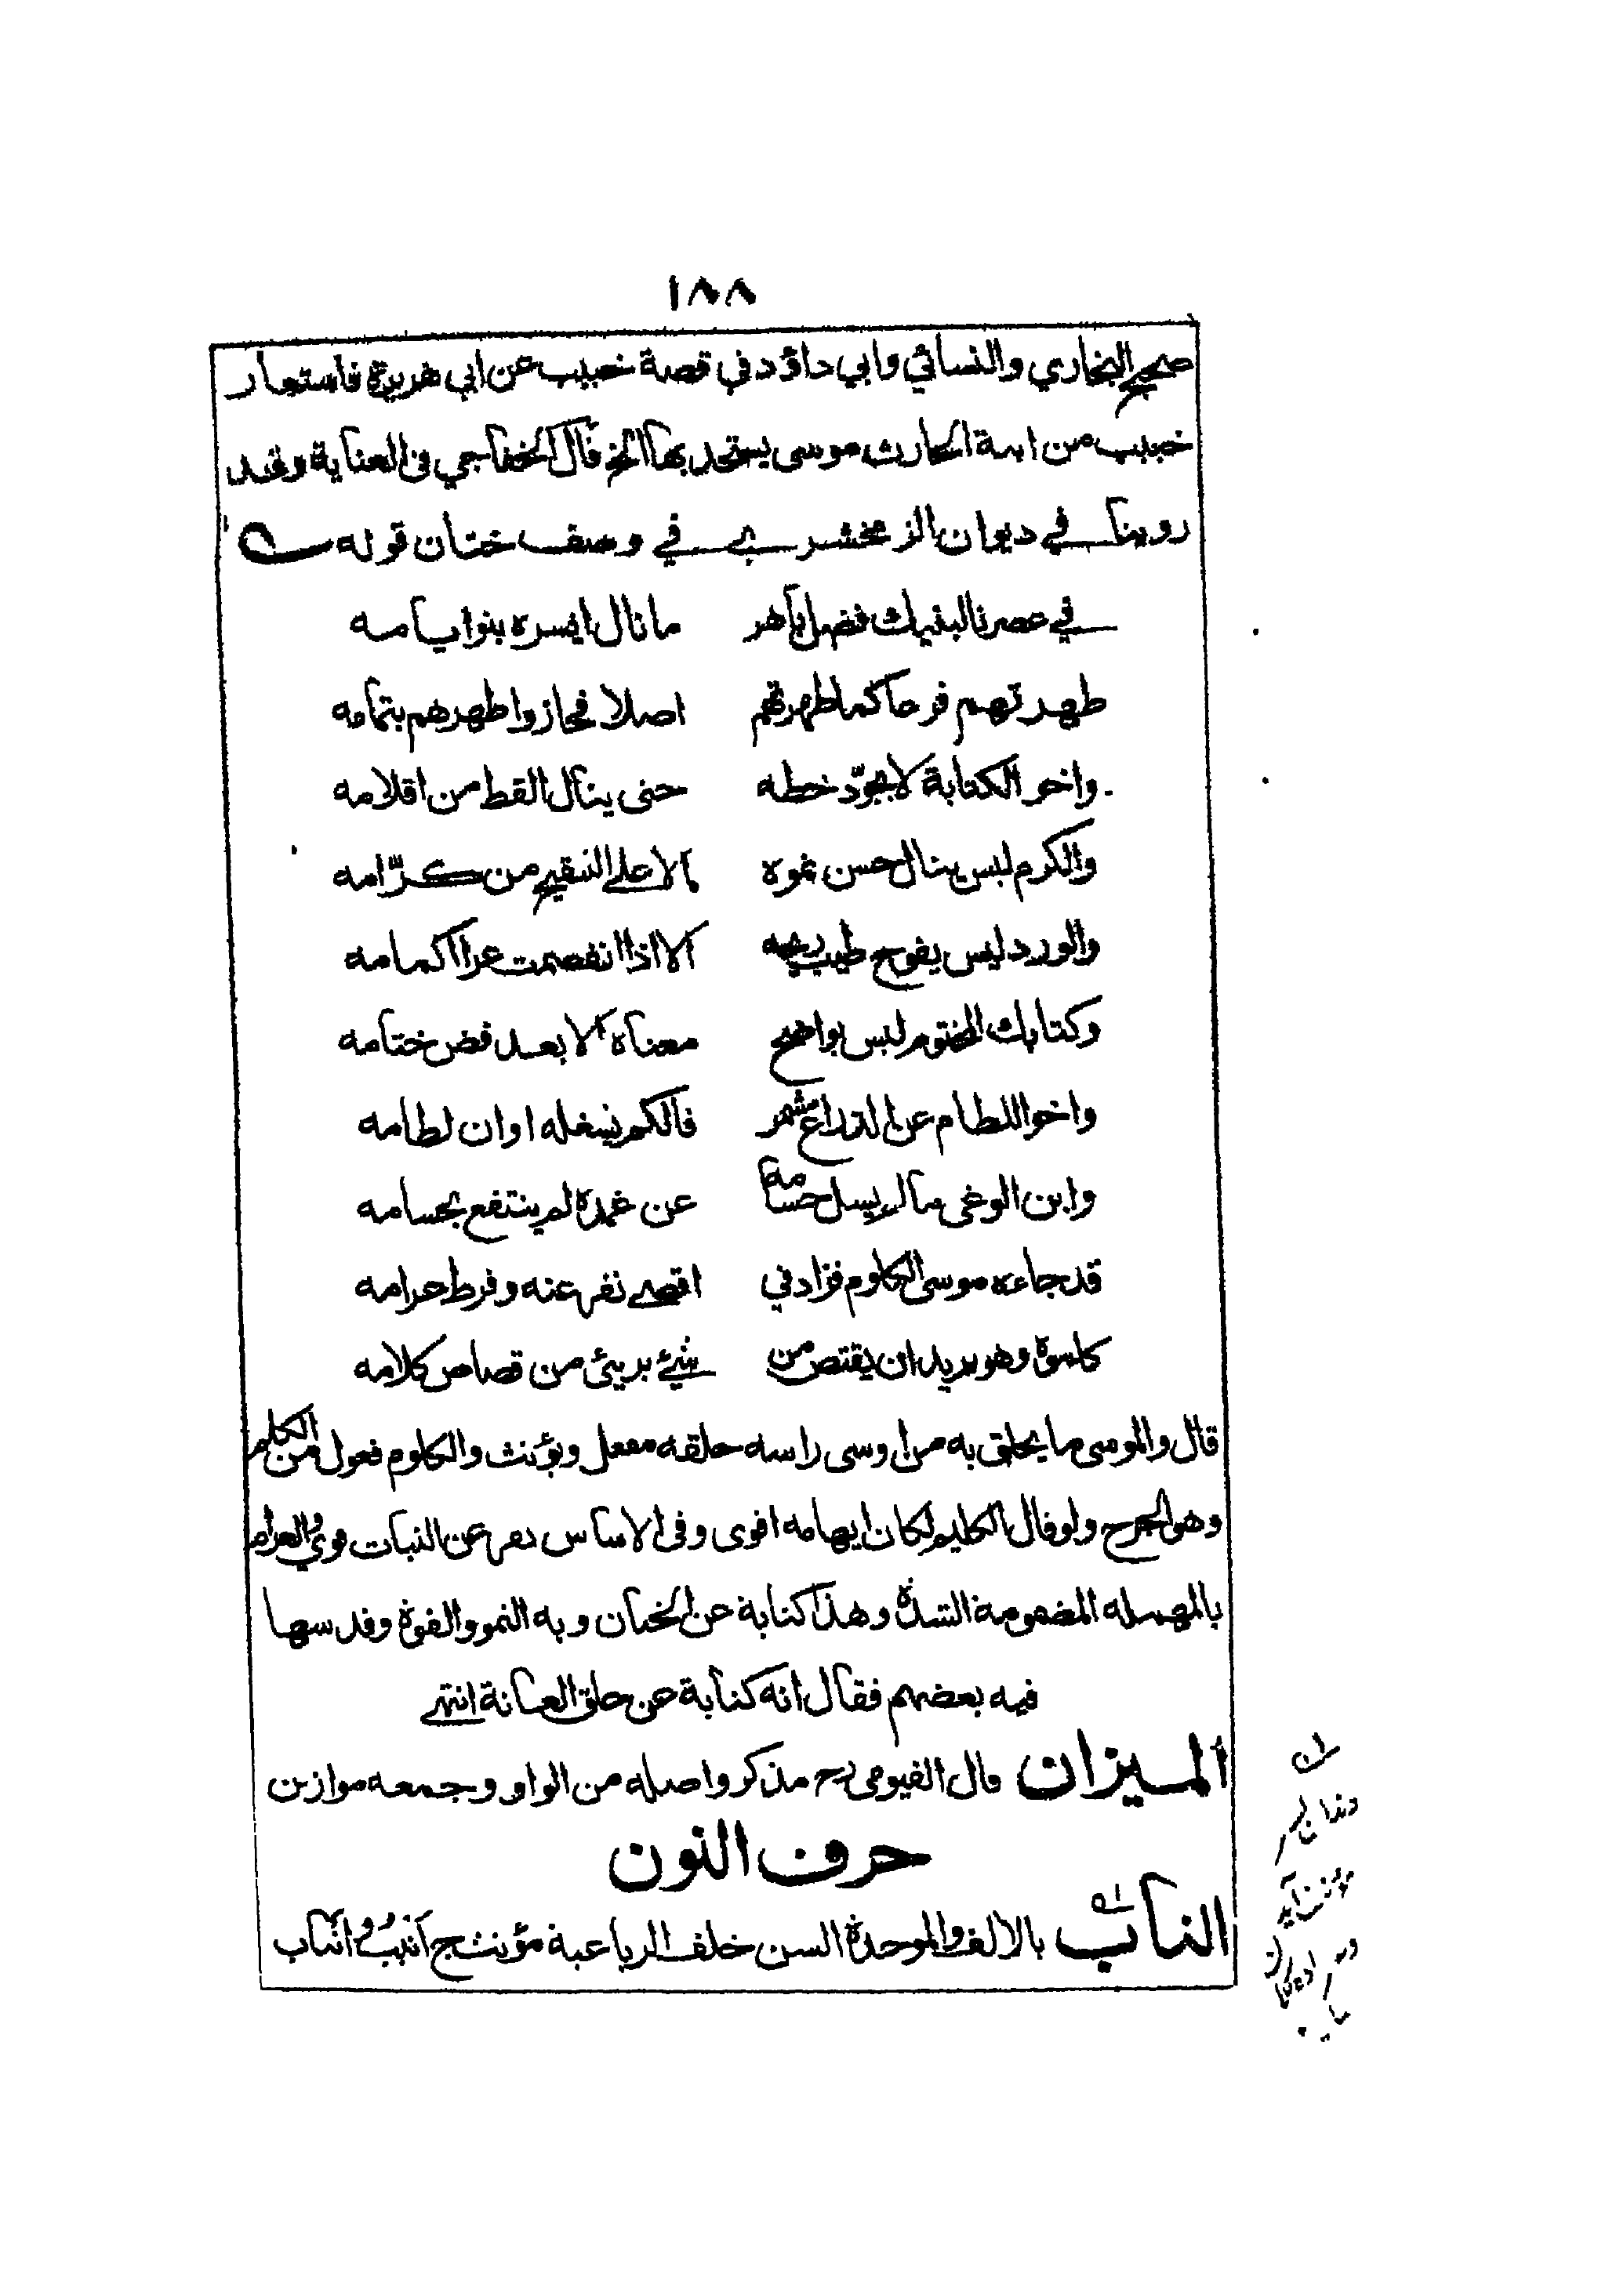 ١٨٨
صحيح البخاري والنسائي وابي داؤد في قصة خبيب عن ابي هريرة فاستعار
خبيب من ابنة الحارث موسى يستحد بها الخ قال الخفاجي في العناية وقد
روينا في ديوان الزمخشري في وصف ختان قوله
في عصرنا لبنيك فضل باهر ما نال ايسره بنوايامه
طهرتهم فرحا كما طهرتهم اصلا فحازوا طهرهم بتمامه
واخو الكتابة لا يجوّد خطه حتى ينال القط من اقلامه
والكرم ليس ينال حسن نموه الا على التنقيح من كرّامه
والورد ليس يفوح طيب ريحه الا اذا انفصمت عرا اكمامه
وكتابك المختوم ليس بواضح معناه الا بعد فض ختامه
واخو اللطام عن الذراع مشمر فالكم يشغله اوان لطامه
وابن الوغى ما لم يسل حسامه عن غمده لم ينتفع بحسامه
قد جاءه موسى الكلوم فزاد في اقصى نفر عنه وفرط حرامه
كاسوة وهو يريد ان يقتص من شيئ بريئ من قصاص كلامه
قال والموسى ما يحلق به من اوسى راسه حلقه مفعل ويؤنث والكلوم فعول من الكلم
وهو الجرح ولو قال الكليم لكان ايهامه اقوى وفي الاساس عن النبات قوي العرام
بالمهمله المضمومة الشدة وهذا كناية عن الختان وبه النمو والقوة وقد سها
فيه بعضهم فقال انه كناية عن حلق العانة انتهى
الميزان قال الفيومي رح مذكر واصله من الواو وجمعه موازين
حرف النون
الناب بالالف والموحدة السن خلف الرباعية مؤنث ج انيب و انياب